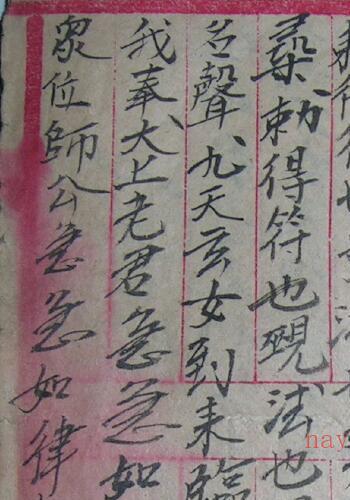 灵勅得符也灵法也
名聲九天玄女到来臨
我奉太上老君急急如
眾位師公急急如律
nay